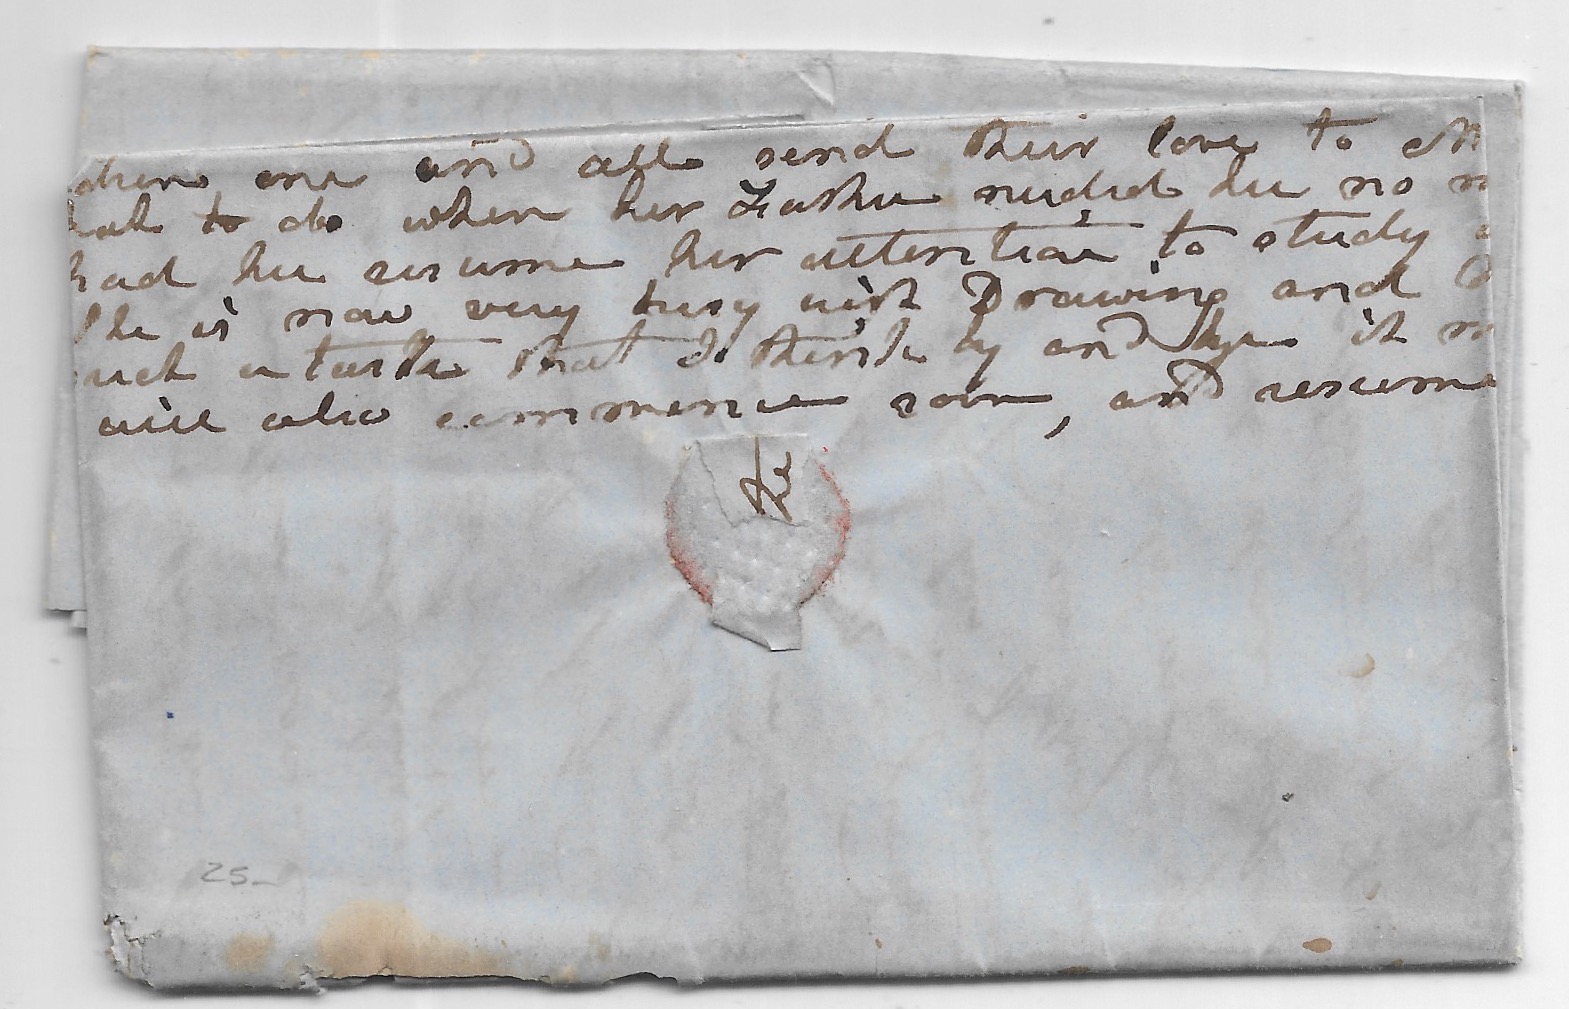 dren, one and all send their love to M
to do when her Father needed her no m
had her resume her attention to study a
She is now very busy with Drawing and
uch a taste that I think by and bye it m
will also commence soon, and resume
25-